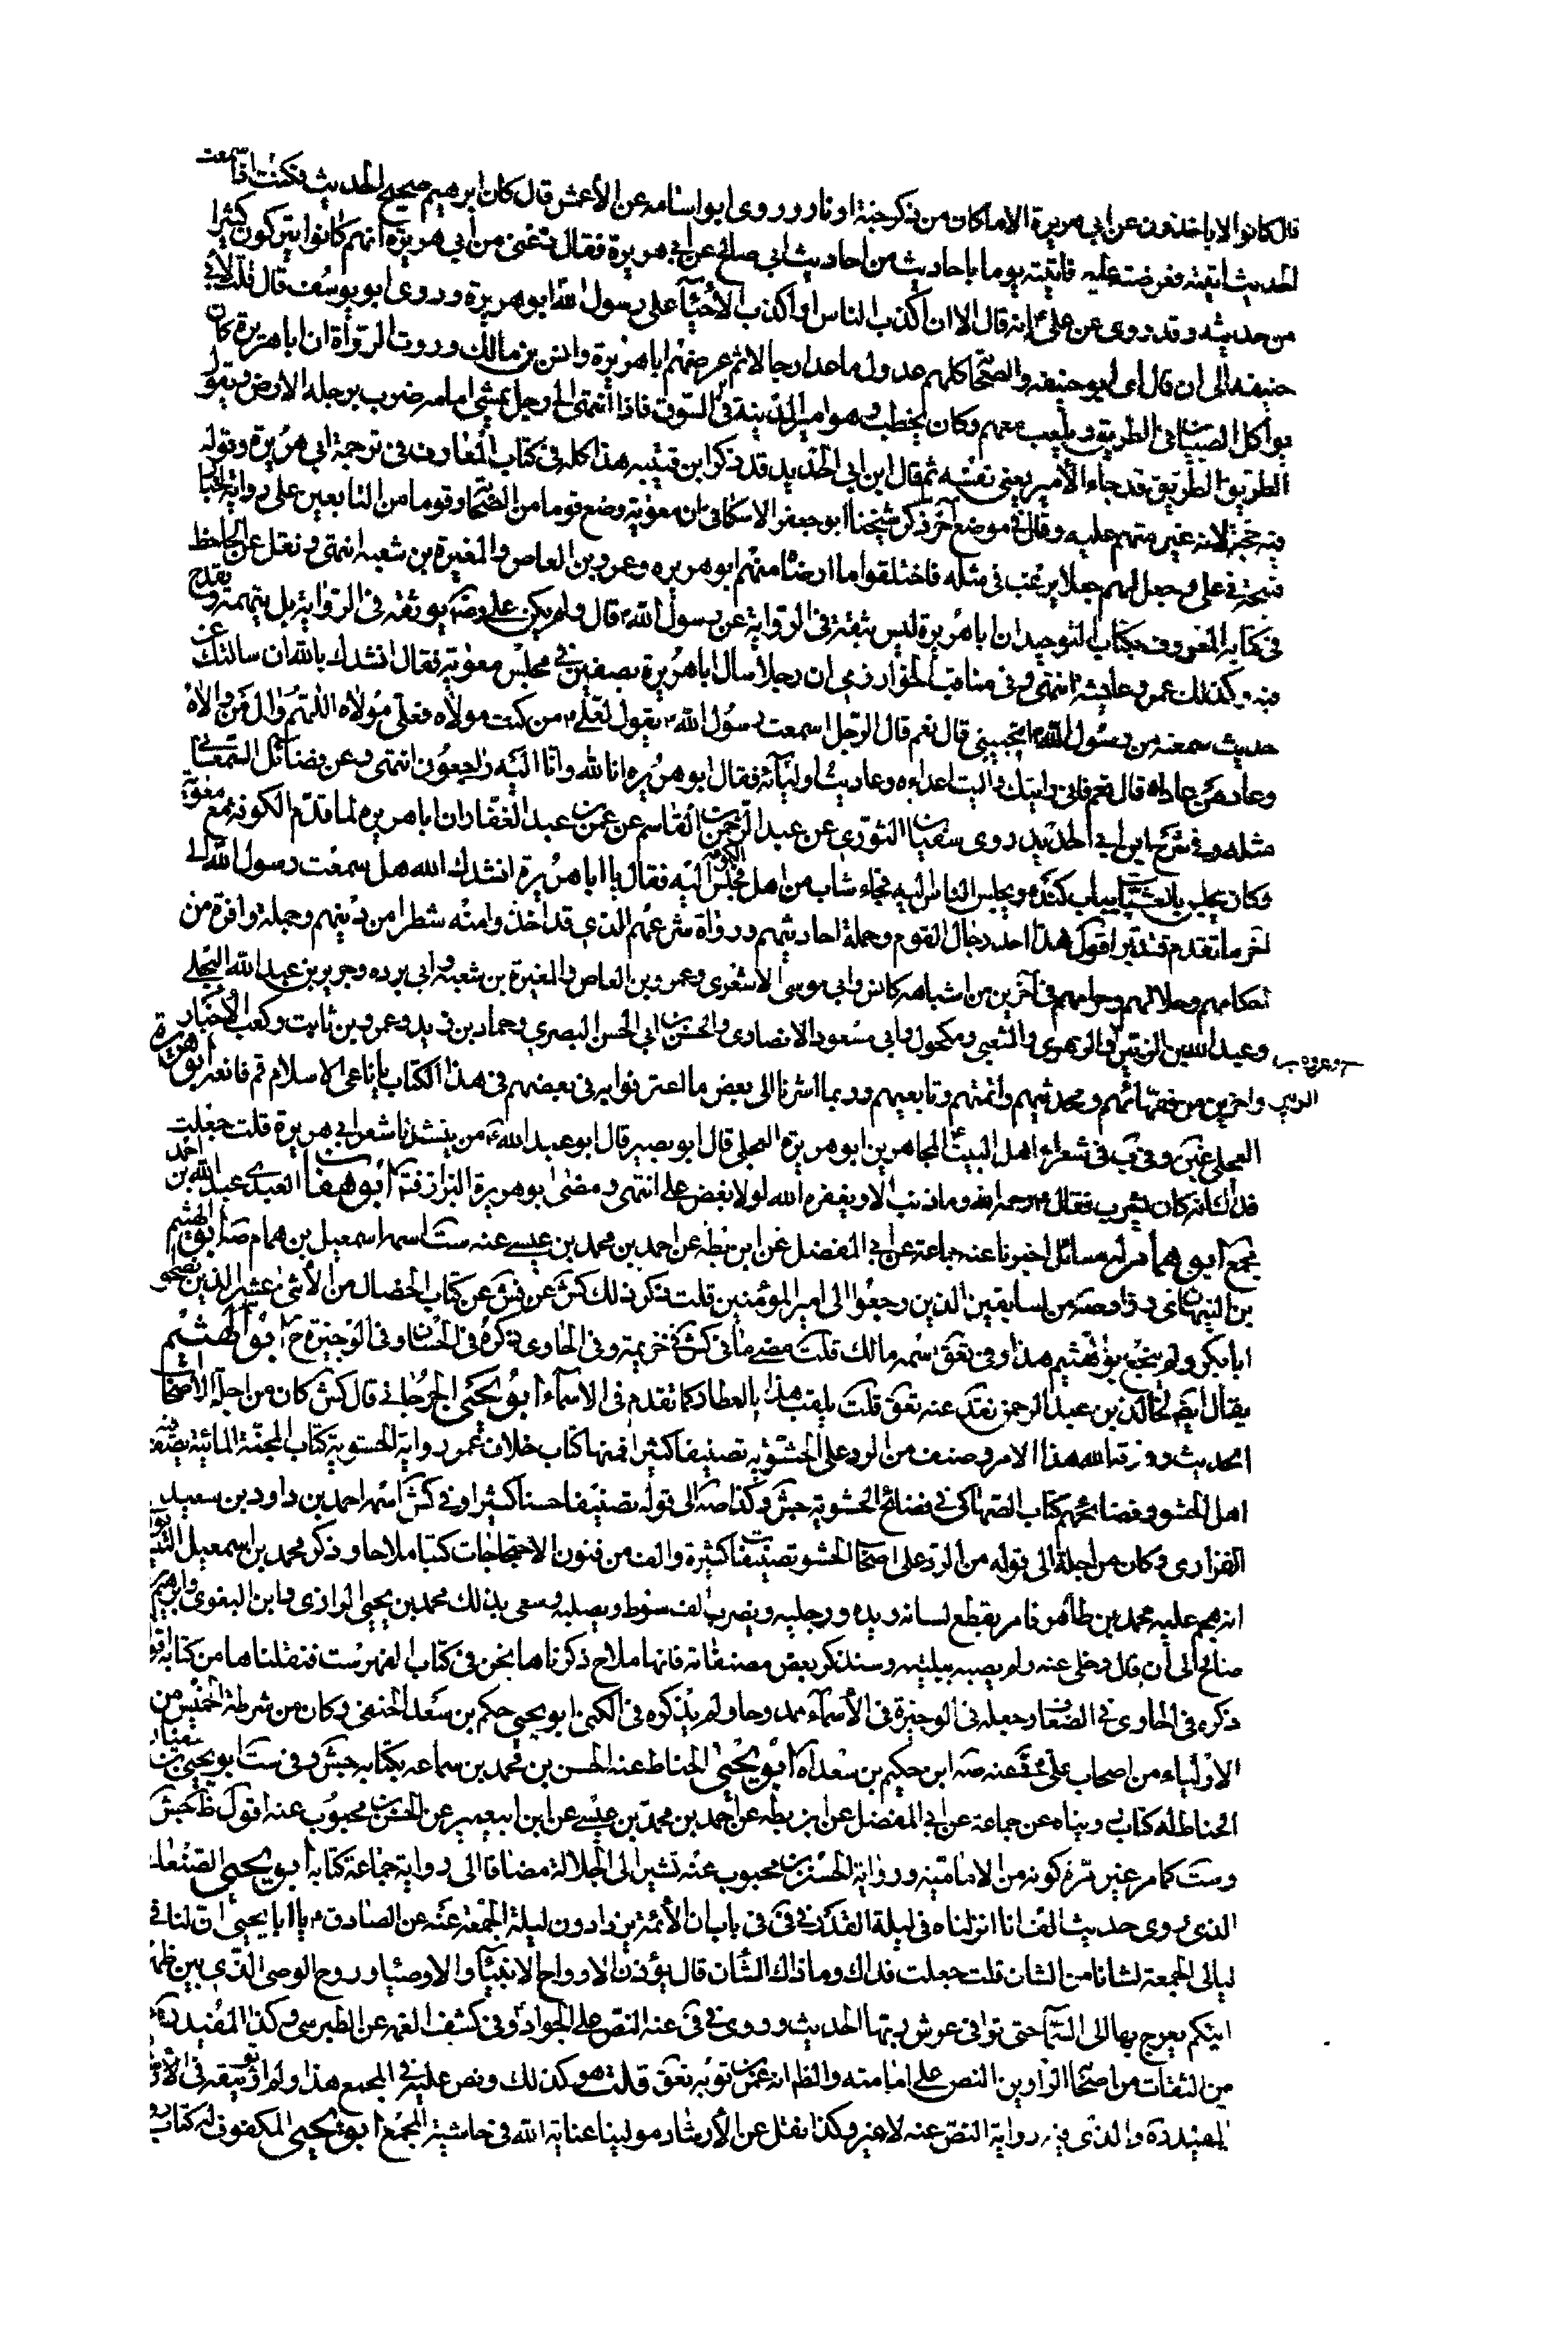 قال كانوا لا ياخذون عن ابي هريرة الا ما كان من ذكر جنة او نار وروى ابو اسامه عن الأعمش قال كان ابرهيم صحيح الحديث فكنت اذا سمعت
الحديث اتيته فعرضته عليه فاتيته يوما باحاديث من احاديث ابي صالح عن ابي هريرة فقال دعنى من أبي هريرة انهم كانوا يتركون كثيرا
من حديثه وقد روى عن علي ع انه قال الا ان اكذب الناس او اكذب الأحياء على رسول الله ابو هريرة وروى ابو يوسف قال قلت لأبي
حنيفه الى ان قال اى ابو حنيفه والصحابة كلهم عدول ما عدا رجالا ثم عد منهم ابا هريرة وانس بن مالك وروت الرواة ان ابا هريرة كان
يواكل الصبيان في الطريق ويلعب معهم وكان يخطب وهو امير المدينة في السوق فاذا انتهى الى رجل يمشي امامه ضرب برجله الارض ويقول
الطريق الطريق قد جاء الأمير يعني نفسه ثم قال ابن ابي الحديد قد ذكر ابن قتيبه هذا كله في كتاب المعارف في ترجمة ابي هريرة وقوله
فيه حجة لانه غير متهم عليه وقال في موضع آخر ذكر شيخنا ابو جعفر الاسكافي ان معوية وضع قوما من الصحابة وقوما من التابعين على رواية اخبار
قبيحة في علي وجعل لهم جعلا يرغب في مثله فاختلقوا ما ارضاه منهم ابو هريره وعمرو بن العاص والمغيرة بن شعبه انتهى ونقل عن الجاحظ
في كتابه المعروف بكتاب التوحيد ان ابا هريرة ليس بثقة في الرواية عن رسول الله ص قال ولم يكن علي ع يوثقه في الرواية بل يتهمه ويقدح
فيه وكذلك عمر وعايشه انتهى وفي مناقب الخوارزمي ان رجلا سال ابا هريرة بصفين في مجلس معوية فقال انشدك بالله ان سالتك عن
حديث سمعته من رسول الله ص اتجيبني قال نعم قال الرجل اسمعت رسول الله ص يقول لعلي ع من كنت مولاه فعلي مولاه اللهم وال من والاه
وعاد من عاداه قال نعم قال فاني رايتك واليت اعداءه وعاديت اوليائه فقال ابو هريره انا لله وانا اليه راجعون انتهى وعن فضائل السمعاني
مثله وفي شرح ابن ابي الحديد روى سفيان الثوري عن عبد الرحمن بن القاسم عن عمر بن عبد الغفار ان ابا هريره لما قدم الكوفة مع معوية
وكان يجلس بالعشيات بباب كنده ويجلس الناس اليه فجاء شاب من اهل الكوفه فجلس اليه فقال يا ابا هريرة انشدك الله هل سمعت رسول الله الى
آخر ما تقدم فتدبر اقول هذا احد رجال القوم وجملة احاديثهم ورواة شرعهم الذي قد اخذوا منه شطرا من دينهم وجملة وافرة من
احكامهم وحلالهم وحرامهم في آخرين من اشباهه كانس وابي موسى الاشعري وعمرو بن العاص والمغيرة بن شعبه وابي برده وجرير بن عبد الله البجلي
وعبد الله بن الزبير والزهري والشعبي ومكحول وابي مسعود الانصاري والحسن بن ابي الحسن البصري وحماد بن زيد وعمرو بن ثابت وكعب الأحبار
وعروه بن الزبير واخرين من فقهائهم ومحدثيهم وائمتهم وتابعيهم وربما اشرنا الى بعض ما اعترفوا به في بعضهم في هذا الكتاب يا ناعي الاسلام قم فانعه ابو هريرة
العجلي غير وفي ب في شعراء اهل البيت ع المجاهرين ابو هريرة العجلي قال ابو بصير قال ابو عبد الله ع من ينشدنا شعر ابي هريرة قلت جعلت
فداك انه كان يشرب فقال ع رحمه الله وما ذنب الا ويغفره الله لولا بغض علي انتهى ومضى ابو هريرة البزاز فتم ابو هفان العبدى عبد الله بن احمد
مجمع ابو همام له مسائل اخبرنا عنه جماعة عن ابي المفضل عن ابن بطه عن احمد بن محمد بن عيسى عنه ست اسمه اسمعيل بن همام صه ابو الهيثم
بن التيهان ي د ق ومضى من السابقين الذين رجعوا الى امير المؤمنين قلت ذكر ذلك كش عن فش عن كتاب الخصال من الأثني عشر الذين نصحوا
ابا بكر ولم يجئ بو الهيثم هذا وفي تعق اسمه مالك قلت مضى ما في كش في خزيمة وفي الحاوي ذكره في الحسان وفي الوجيزة ح ابو الهيثم
يقال ايضا لخالد بن عبد الرحمن نقد عنه تعق قلت يلقب هذا بالعطار كما تقدم في الاسماء ابو يحيى الجرجاني قال كش كان من اجلة الأصحاب
الحديث ورزقه الله هذا الامر وصنف من الرد على الحشوية تصنيفا كثيرا فمنها كتاب خلاف عمر برواية الحشوية كتاب المحنة المائية يصف فيه
اهل الحشو وفضائحهم كتاب الصهاكي في فضائح الحشوية جش وكذا صه الى قوله تصنيفا حسنا كثيرا وفي كش اسمه احمد بن داود بن سعيد
الفزارى وكان من اجلة الى قوله من الرد على اصحاب الحشو تصنيفات كثيرة والف من فنون الاحتجاجات كتبا ملاحا وذكر محمد بن اسمعيل النيسابوري
انه هجم عليه محمد بن طاهر فامر بقطع لسانه ويديه ورجليه ويضرب الف سوط ويصلبه وسعى بذلك محمد بن يحيى الرازي وابن البغوي وابرهيم
صالح الى ان قال وخلى عنه ولم يصبه ببلية وسنذكر بعض مصنفاته فانها ملاح ذكرناها نحن في كتاب الفهرست فنقلناها من كتابه اقول
ذكره في الحاوي في الضعاف وجعله في الوجيزة في الأسماء ممدوحا ولم يذكره في الكنى ابو يحيى حكم بن سعد الحنفي وكان من شرطة الخميس من
الاولياء من اصحاب علي ع ق عنه صه ابن حكيم بن سعد اه ابو يحيى الحناط عنه الحسن بن محمد بن سماعه بكتابه جش وفي ست ابو يحيى
الحناط له كتاب رويناه عن جماعة عن ابي المفضل عن ابن بطه عن احمد بن محمد بن عيسى عن ابن ابي عمير عن الحسن بن محبوب عنه اقول ظ جش
وست كما مر غير مرة كونه من الامامية ورواية الحسن بن محبوب عنه تشير الى الجلالة مضافا الى رواية جماعة كتابه ابو يحيى الصنعاني
الذي روى حديث الف انا انزلناه في ليلة القدر في في باب ان الأئمة يزدادون ليلة الجمعة عنه عن الصادق ع يا ابا يحيى ان لنا في
ليالي الجمعة لشانا من الشان قلت جعلت فداك وما ذاك الشان قال يؤذن لارواح الانبياء والاوصياء وروح الوصي الذي بين ظهر
انيكم يعرج بها الى السماء حتى توافي عرش ربها الحديث وروى في في عنه النص على الجواد ع وفي كشف الغمه عن الطبرسي وكذا المفيد
من الثقات من اصحابنا الراوين النص على امامته والظم انه عمر بن توبه تعق قلت هو كذلك ونص عليه في المجمع هذا ولم اقف
المفيد ره والذي فيه رواية النص عنه لا غير وكذا نقل عن الأرشاد مولينا عناية الله في حاشية المجمع ابو يحيى المكفوف له كتاب